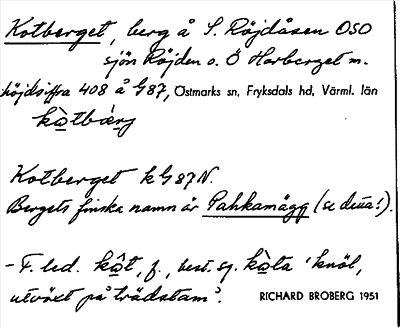 Kotberget, berg å S. Röjdåsen OSO
sjön Röjden o. Ö Harberget m.
höjdsiffra 408 å G87, Östmarks sn, Fryksdals hd, Värml. län
kòtbærj
Kotberget k G 87 N.
Bergets finska namn är Pahkamägg (se detta!).
- F. led. kôt, f., best. sg. kòta 'knöl,
utväxt på trädstam'.
RICHARD BROBERG 1951